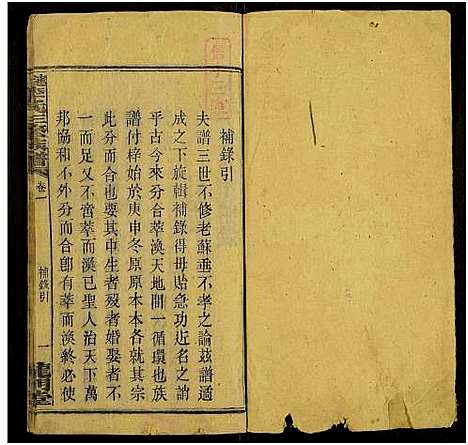 補錄引
夫譜三世不修老蘇垂不孝之論茲譜適
成之下旋輯補錄得毋貽急功近名之誚
乎古今來分合萃渙天地間一循環也族
譜付梓始於庚申冬原原本本各就其宗
此分而合也要其中生者歿者婚娶者不
一而足又不啻萃而渙已聖人治天下萬
邦協和不外分而合卽有萃而渙終必使
族譜
卷一
補錄引
一